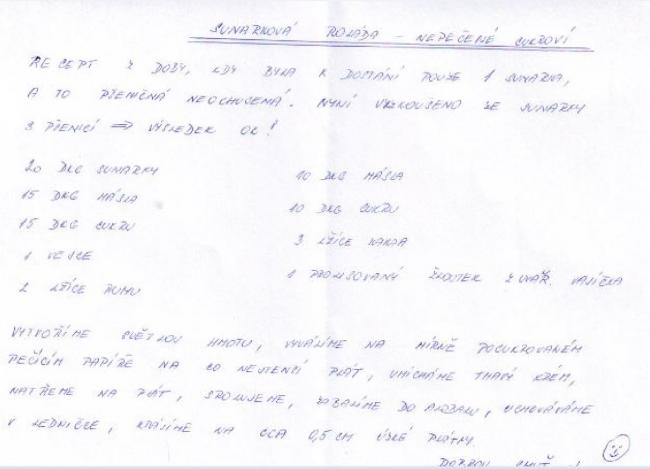 SUNARKOVÁ ROLÁDA – NEPEČENÉ CUKROVÍ
RECEPT Z DOBY, KDY BYLA K DOSTÁNÍ POUZE 1 SUNARKA,
A TO PŠENIČNÁ NEOCHUCENÁ. NYNÍ VYZKOUŠENO ZE SUNARKY
S PŠENICÍ ⇒ VÝSLEDEK OK!
20 DKG SUNARKY
15 DKG MÁSLA
15 DKG CUKRU
1 VEJCE
2 LŽÍCE RUMU
10 DKG MÁSLA
10 DKG CUKRU
3 LŽÍCE KAKAA
1 PROLISOVANÝ ŽLOUTEK Z UVAŘ. VAJÍČKA
VYTVOŘÍME SVĚTLOU HMOTU, VYVÁLÍME NA MÍRNĚ POCUKROVANÉM
PEČÍCÍM PAPÍŘE NA CO NEJTENČÍ PLÁT, UMÍCHÁME TMAVÝ KRÉM,
NATŘEME NA PLÁT, SROLUJEME, ZABALÍME DO ALOBALU, UCHOVÁVÁME
V LEDNIČCE, KRÁJÍME NA CCA 0,5 CM ÚZKÉ PLÁTKY.
DOBROU CHUŤ!